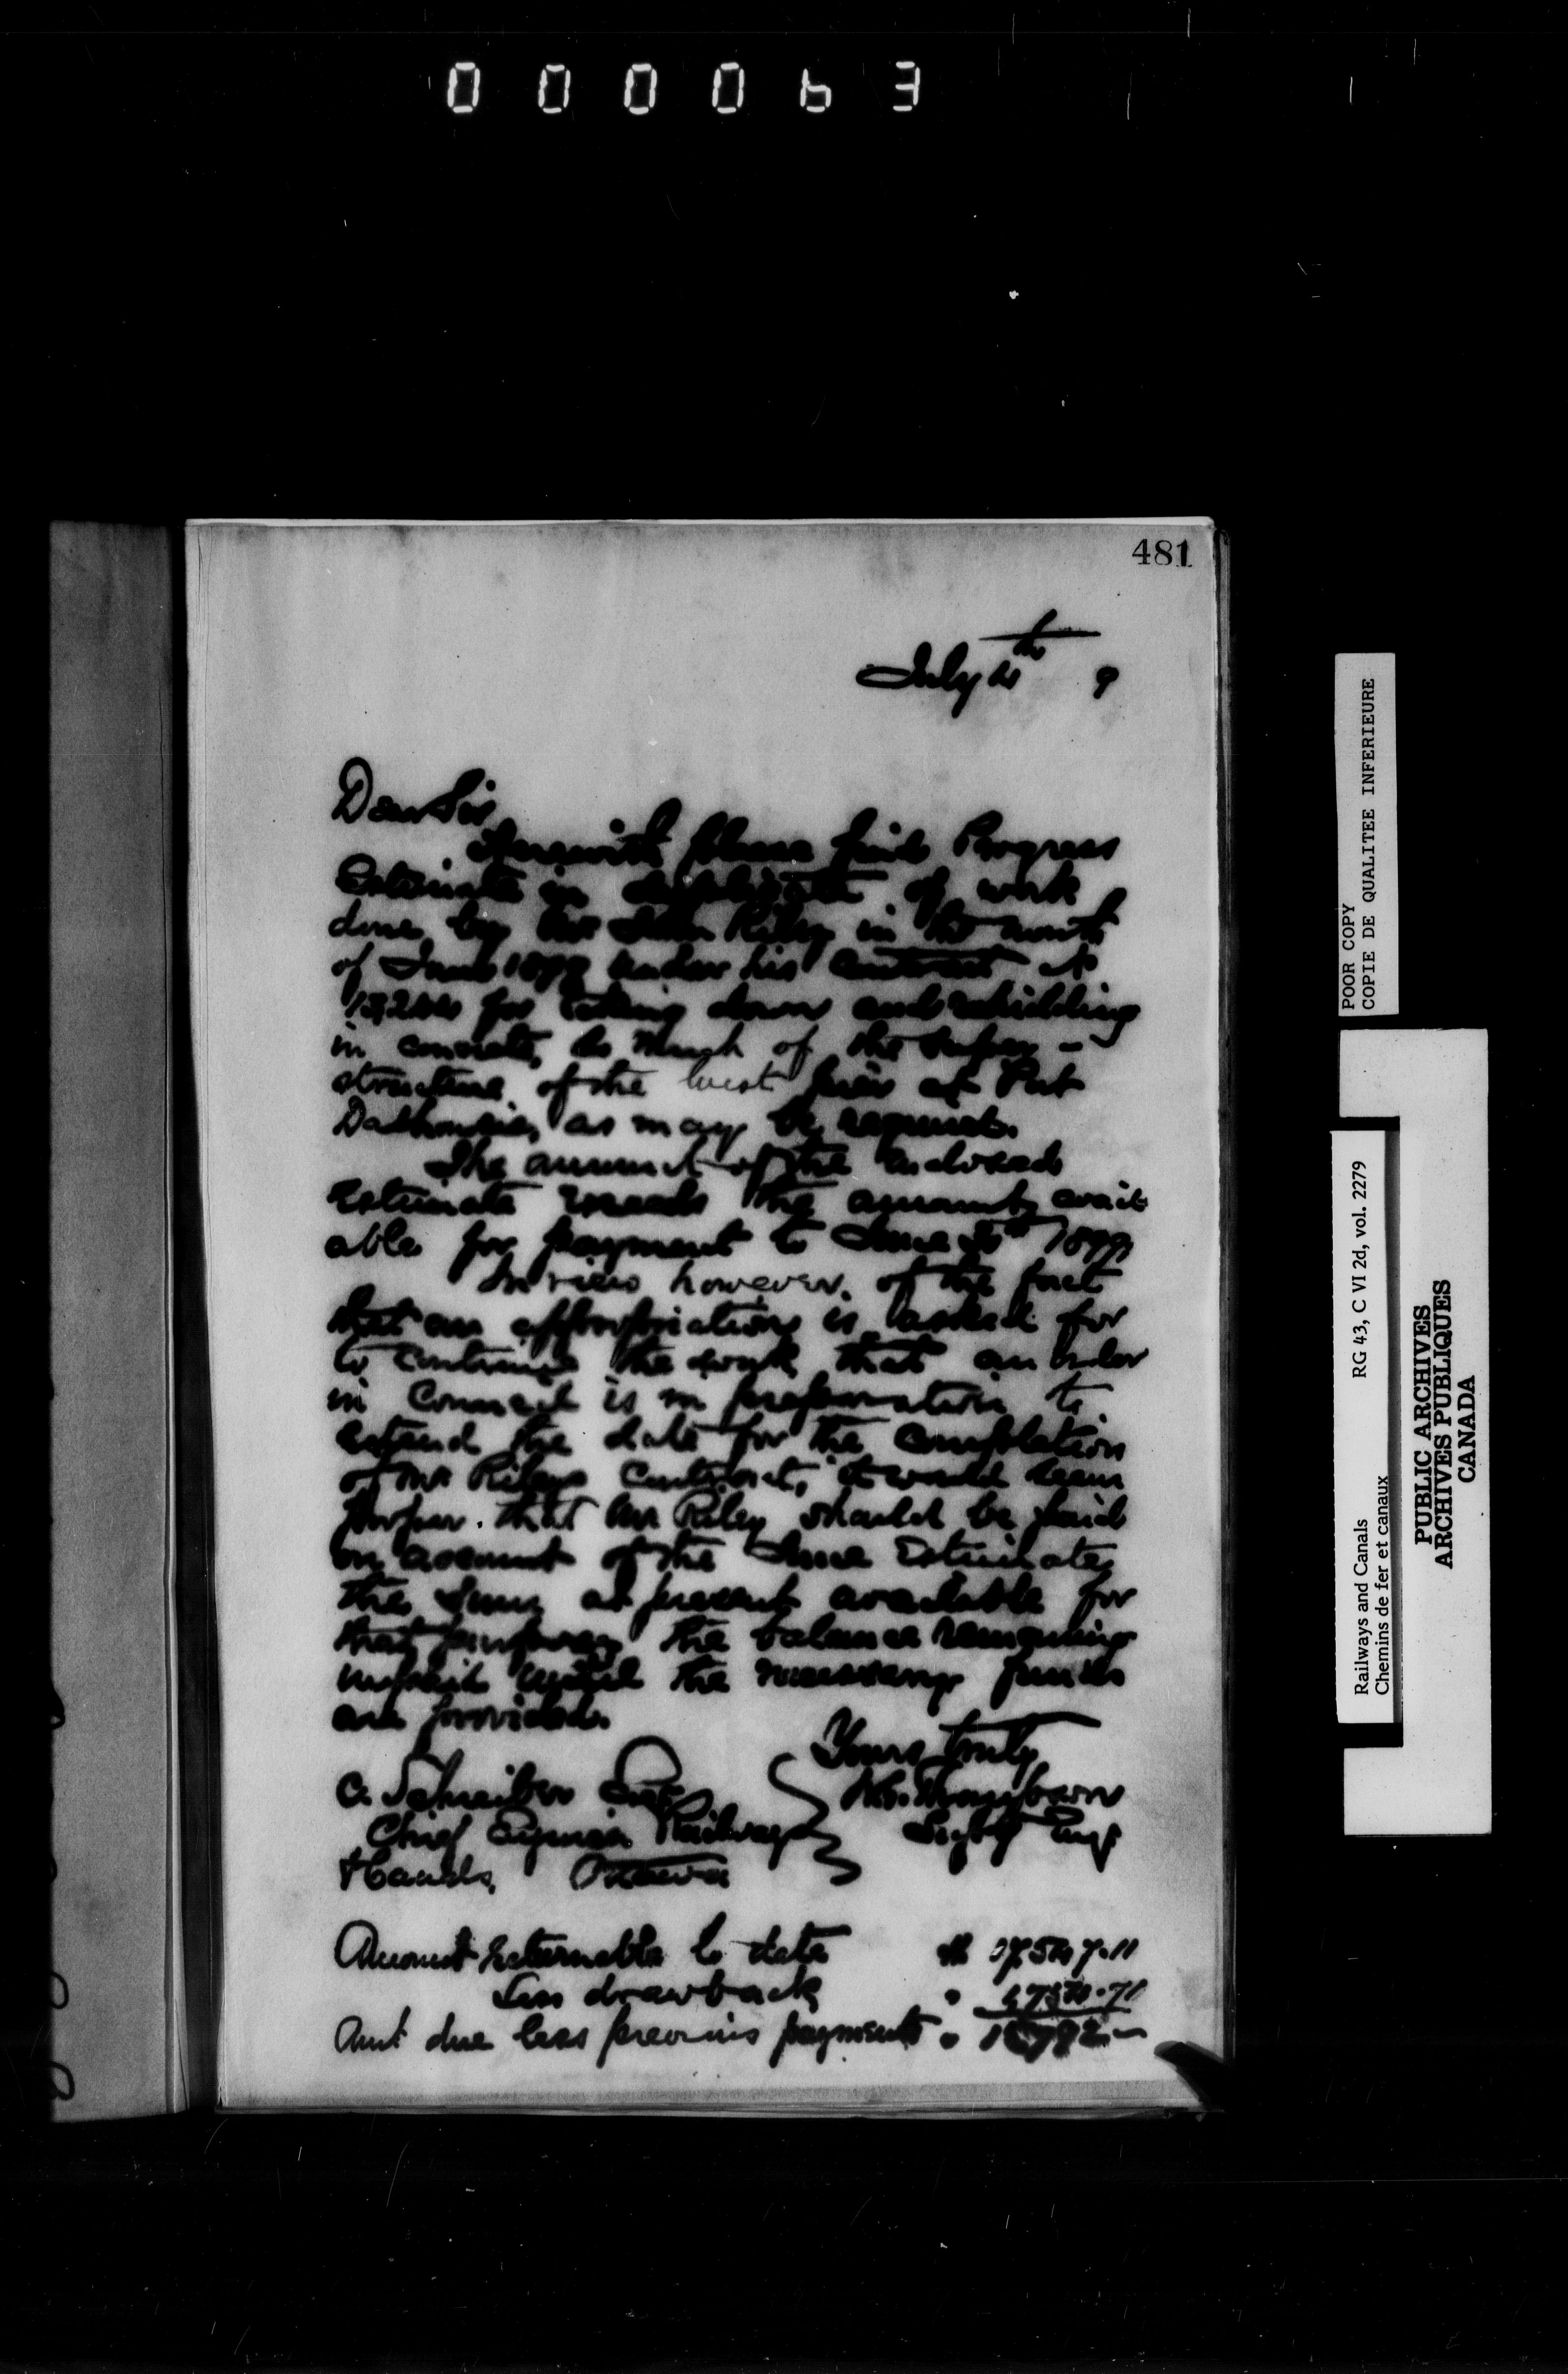 000063
481
July 4th 9
Dear Sir
Herewith please find Progress
Estimate in duplicate of work
done by Mr John Riley in the month
of June 1899 under his contract No
for taking down and rebuilding
in concrete, so much of the super-
structure of the West pier at Port
Dalhousie, as may be required.
The amount of the enclosed
Estimate exceeds the amount avail
able for payment to June 30th 1899
In view however, of the fact
that an appropriation is asked for
to continue the work, that an order
in Council is in preparation to
extend the date for the completion
of Mr Rileys Contract, it would seem
proper that Mr Riley should be paid
on account of the June Estimate,
the sum at present available for
that purpose, the balance remaining
unpaid until the necessary funds
are provided.
Yours truly
C. Schreiber Esq
Thompson
Chief Engineer Railways
Supt Engr
& Canals, Ottawa
Amount Returnable to date
Less drawback
Amt due less previous payments
POOR COPY
COPIE DE QUALITEE INFERIEURE
Railways and Canals RG 43, C VI 2d, vol. 2279
Chemins de fer et canaux
PUBLIC ARCHIVES
ARCHIVES PUBLIQUES
CANADA